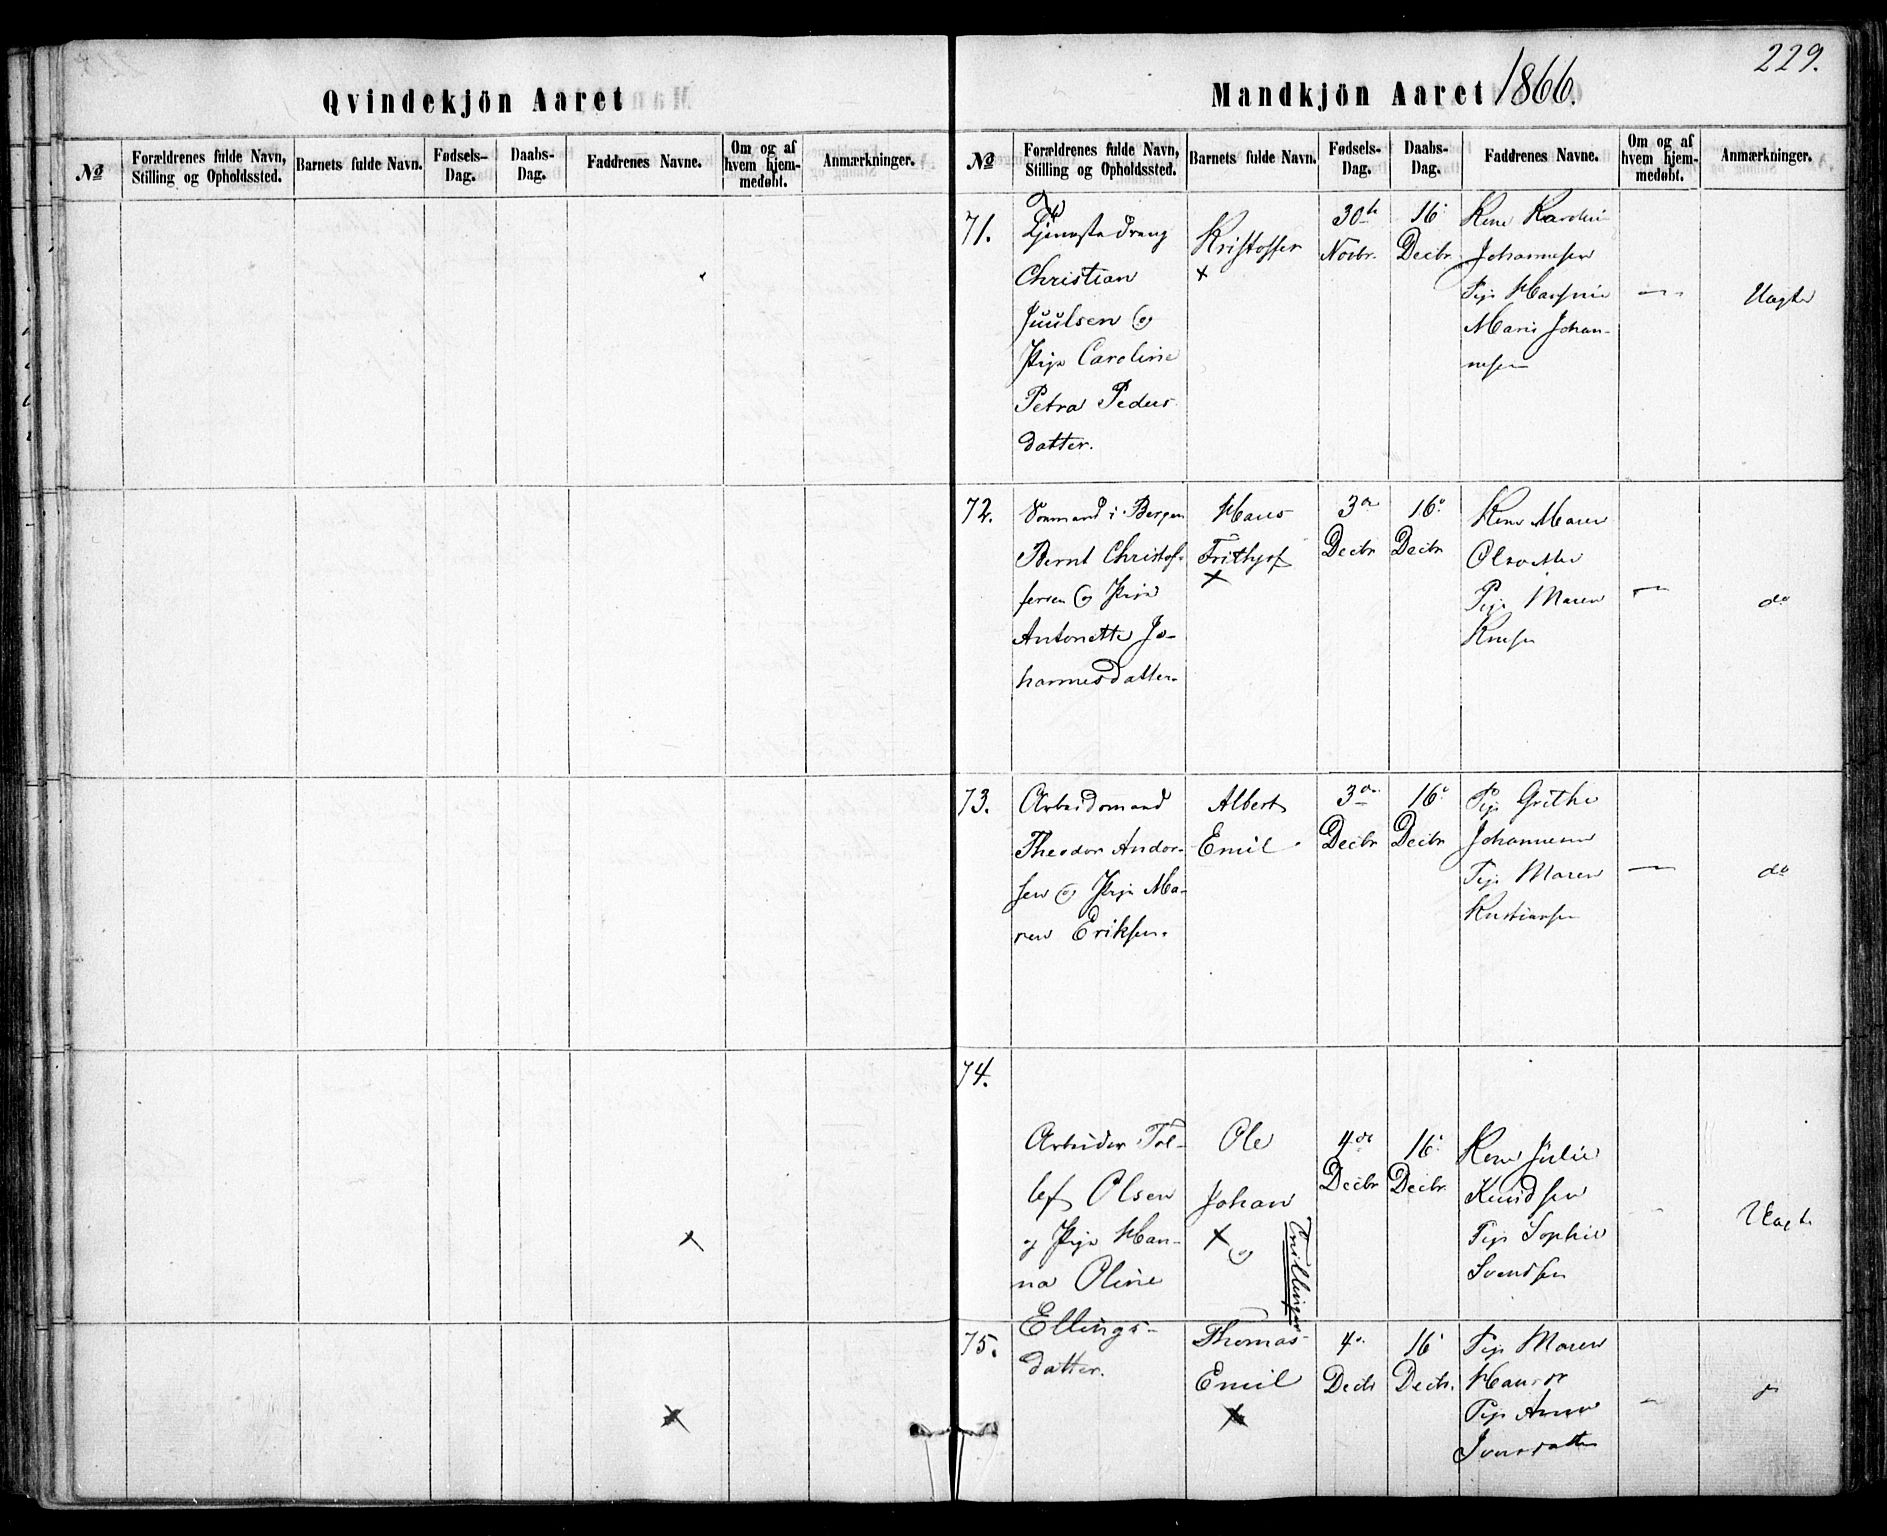 Qvindekjön Aaret
No
Forældrenes fulde Navn,
Stilling og Opholdssted.
Barnets fulde Navn.
Fødsels-
Dag.
Daabs-
Dag.
Faddrenes Navne.
Om og af
hvem hjem-
medøbt.
Anmærkninger.
229.
Mandkjön Aaret 1866.
No
Forældrenes fulde Navn,
Stilling og Opholdssted.
Barnets fulde Navn.
Fødsels-
Dag.
Daabs-
Dag.
Faddrenes Navne.
Om og af
hvem hjem-
medøbt.
Anmærkninger.
71.
Tjenestedreng
Christian
Juulsen og
Pige Caroline
Petra Peders
datter.
Kristoffer
30te
Novbr.
16
Decbr.
Kone
Johannesen
Pige
Marie Johan-
nesen
Uægte
72.
Bergen
Bernt Christof-
fersen og Pige
Antonette Jo-
hannesdatter.
Hans
Frithjof
3de
Decbr
16
Decbr
Kone Maren
Pige Maren
do
73.
Arbeidsmand
Theodor Ander-
sen og Pige Ma-
ren Eriksen.
Albert
Emil
3de
Decbr
16
Decbr
Pige Grethe
Johannesen
Pige Maren
Kristiansen
do
74.
Arbeider Tol-
lef Olsen
og Pige Han-
na Oline
Ellings-
datter.
Ole
Johan
og
Tvillinger
4de
Decbr
16
Decbr
Kone Julie
Knudsen
Pige Sophie
Svendsen
Uægte
75.
Thomas
Emil
4
Decbr
16
Decbr.
Pige Maren
Pige
Iversdatter
do